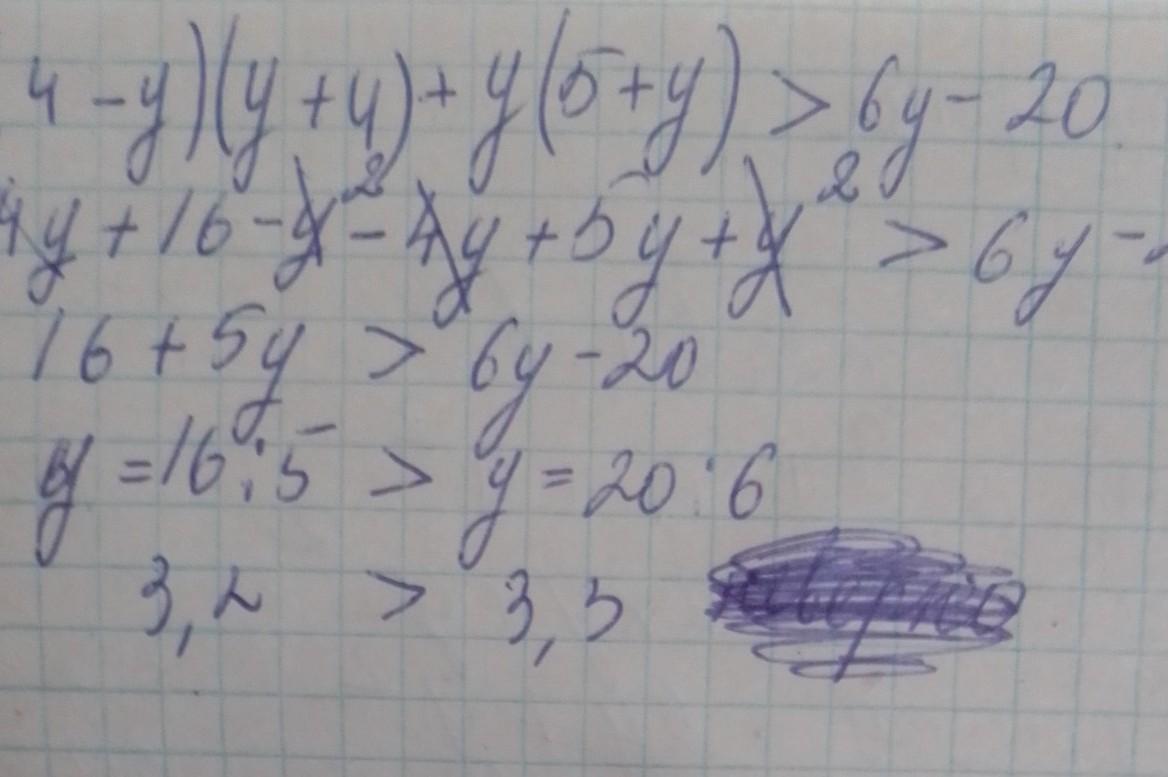 4 - y)(y + 4) + y(5 + y) > 6y - 20
4y + 16 - y² - 4y + 5y + y² > 6y -
16 + 5y > 6y - 20
y = 16 : 5 > y = 20 : 6
3,2 > 3,3